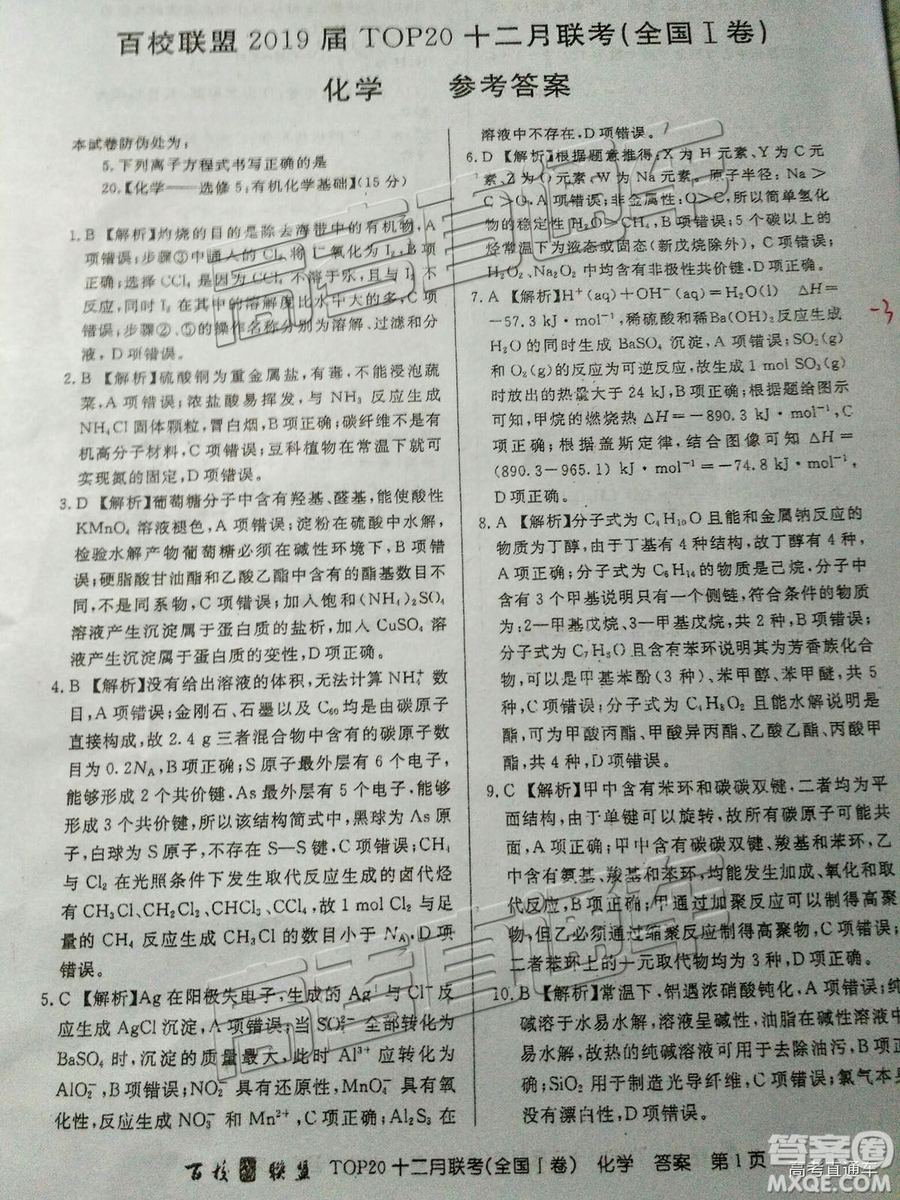 百校联盟 2019 届 TOP20 十二月联考(全国Ⅰ卷)
化学 参考答案
本试卷防伪处为:
5.下列离子方程式书写正确的是
20.【化学——选修5:有机化学基础】(15分)
1.B 【解析】灼烧的目的是除去海带中的有机物,A
项错误;步骤③中通入的 Cl₂ 将 I⁻氧化为 I₂,B项
正确;选择 CCl₄ 是因为 CCl₄ 不溶于水,且与 I₂ 不
反应,同时 I₂ 在其中的溶解度比水中大的多,C项
错误;步骤②、⑤的操作名称分别为溶解、过滤和分
液,D项错误。
2.B 【解析】硫酸铜为重金属盐,有毒,不能浸泡蔬
菜,A项错误;浓盐酸易挥发,与 NH₃ 反应生成
NH₄Cl固体颗粒,冒白烟,B项正确;碳纤维不是有
机高分子材料,C项错误;豆科植物在常温下就可
实现氮的固定,D项错误。
3.D 【解析】葡萄糖分子中含有羟基、醛基,能使酸性
KMnO₄ 溶液褪色,A项错误;淀粉在硫酸中水解,
检验水解产物葡萄糖必须在碱性环境下,B项错
误;硬脂酸甘油酯和乙酸乙酯中含有的酯基数目不
同,不是同系物,C项错误;加入饱和(NH₄)₂SO₄
溶液产生沉淀属于蛋白质的盐析,加入 CuSO₄ 溶
液产生沉淀属于蛋白质的变性,D项正确。
4.B 【解析】没有给出溶液的体积,无法计算 NH₄⁺ 数
目,A项错误;金刚石、石墨以及 C₆₀ 均是由碳原子
直接构成,故 2.4 g 三者混合物中含有的碳原子数
目为 0.2Nₐ,B项正确;S原子最外层有6个电子,
能够形成2个共价键,As最外层有5个电子,能够
形成3个共价键,所以该结构简式中,黑球为 As原
子,白球为S原子,不存在S—S键,C项错误;CH₄
与 Cl₂ 在光照条件下发生取代反应生成的卤代烃
有 CH₃Cl、CH₂Cl₂、CHCl₃、CCl₄,故 1 mol Cl₂ 与足
量的 CH₄ 反应生成 CH₃Cl 的数目小于 Nₐ,D项
错误。
5.C 【解析】Ag在阳极失电子,生成的 Ag⁺与 Cl⁻反
应生成 AgCl沉淀,A项错误;当 SO₄²⁻ 全部转化为
BaSO₄ 时,沉淀的质量最大,此时 Al³⁺ 应转化为
AlO₂⁻,B项错误;NO₂⁻ 具有还原性,MnO₄⁻ 具有氧
化性,反应生成 NO₃⁻ 和 Mn²⁺,C项正确;Al₂S₃ 在
溶液中不存在,D项错误。
6.D 【解析】根据题意推得:X为H元素、Y为C元
素、Z为O元素、W为Na元素。原子半径:Na>
C>O,A项错误;非金属性:O>C,所以简单氢化
物的稳定性 H₂O>CH₄,B项错误;5个碳以上的
烃常温下为液态或固态(新戊烷除外),C项错误;
H₂O₂、Na₂O₂ 中均含有非极性共价键,D项正确。
7.A 【解析】H⁺(aq)+OH⁻(aq)=H₂O(l) ΔH=
−57.3 kJ·mol⁻¹,稀硫酸和稀Ba(OH)₂反应生成
H₂O 的同时生成 BaSO₄ 沉淀,A项错误;SO₂(g)
和 O₂(g)的反应为可逆反应,故生成 1 mol SO₃(g)
时放出的热量大于 24 kJ,B项正确;根据题给图示
可知,甲烷的燃烧热 ΔH=−890.3 kJ·mol⁻¹,C
项正确;根据盖斯定律,结合图像可知 ΔH=
(890.3−965.1) kJ·mol⁻¹=−74.8 kJ·mol⁻¹,
D项正确。
8.A 【解析】分子式为 C₄H₁₀O 且能和金属钠反应的
物质为丁醇,由于丁基有4种结构,故丁醇有4种,
A项正确;分子式为 C₆H₁₄的物质是己烷,分子中
含有3个甲基说明只有一个侧链,符合条件的物质
为:2—甲基戊烷、3—甲基戊烷,共2种,B项错误;
分子式为 C₇H₈O 且含有苯环说明其为芳香族化合
物,可以是甲基苯酚(3种)、苯甲醇、苯甲醚,共5
种,C项错误;分子式为 C₄H₈O₂ 且能水解说明是
酯,可为甲酸丙酯、甲酸异丙酯、乙酸乙酯、丙酸甲
酯,共4种,D项错误。
9.C 【解析】甲中含有苯环和碳碳双键,二者均为平
面结构,由于单键可以旋转,故所有碳原子可能共
面,A项正确;甲中含有碳碳双键、羧基和苯环,乙
中含有氨基、羧基和苯环,均能发生加成、氧化和取
代反应,B项正确;甲可通过加聚反应制得高聚
物,但乙必须通过缩聚反应制得高聚物,C项错误;
二者苯环上的一元取代物均为3种,D项正确。
10.B 【解析】常温下,铝遇浓硝酸钝化,A项错误;纯
碱溶于水易水解,溶液呈碱性,油脂在碱性溶液中
易水解,故热的纯碱溶液可用于去除油污,B项正
确;SiO₂ 用于制造光导纤维,C项错误;氯气本身
没有漂白性,D项错误。
-3
百校联盟 TOP20 十二月联考(全国Ⅰ卷) 化学 答案 第1页
高考直通车
高考直通车
高考直通车
答案圈
MXQE.COM